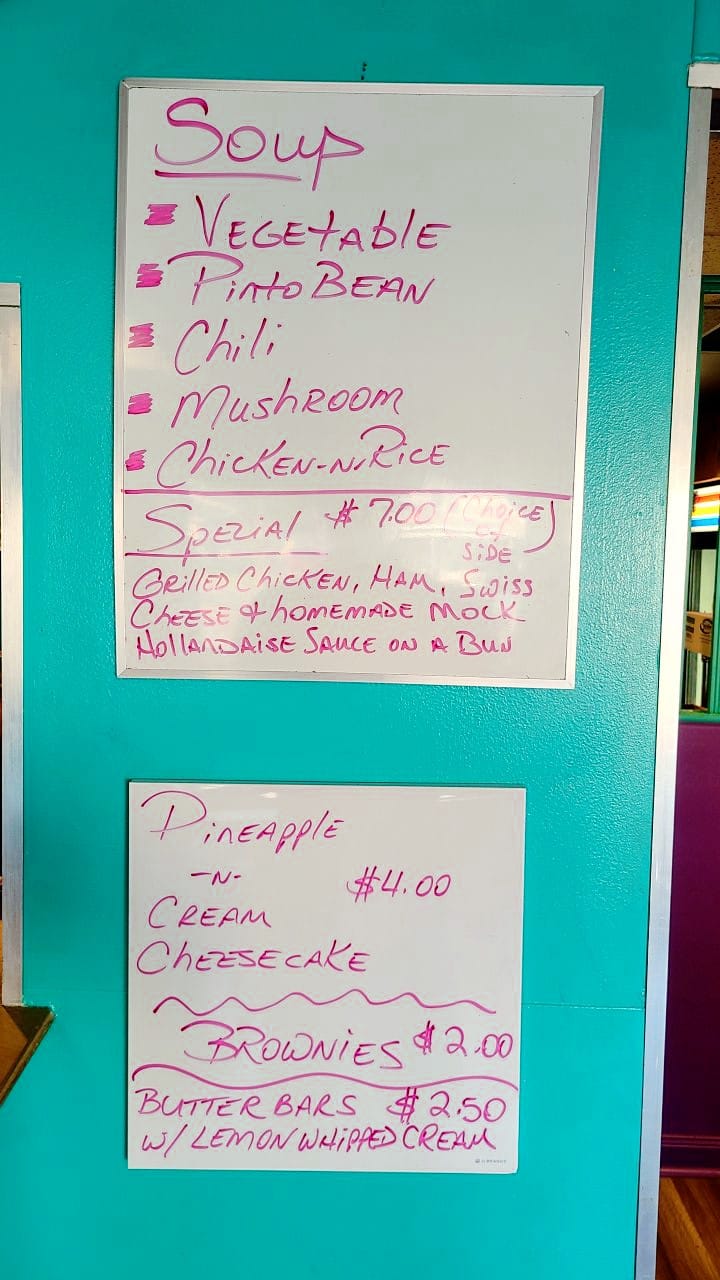 Soup
VEGEtablE
Pinto BEAN
Chili
MushROOM
ChicKEN-N-RicE
SpeciAl $ 7.00 (Choice
of
SiDE)
GRillED ChickEN, HAM, Swiss
CheesE & homemADE Mock
HollANDAisE SAucE on A Bun
PiNEApplE
-N-
$4.00
CREAM
ChEESEcAKE
BROWNiES $2.00
BUTTER BARS $2.50
W/ LEMON WHIPPED CREAM